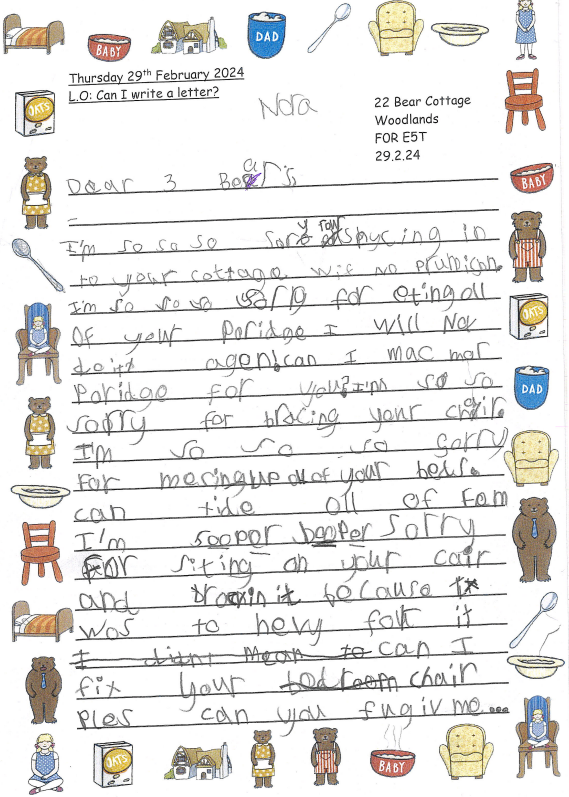 BABY
DAD
Thursday 29th February 2024
L.O: Can I write a letter?
OATS
Nora
22 Bear Cottage
Woodlands
FOR E5T
29.2.24
BABY
Dear 3 Bear's
I'm so so so sory for spycing in
to your cottage wif no prumishn.
I'm so so so sorry for eting oll
OATS
Of your Poridge I will Not
do it agen! can I mac mor
Poridge for you? I'm so so
DAD
sorry for bracing your chair.
I'm so so so sorry
For mesing up oll of your beds.
can I tide oll of Fem
I'm sooper dooper sorry
For siting on your cair
and it because it
was to hevy folt it
I didnt mean to can I
fix your bedroom chair
Ples can you fugiv me...
OATS
BABY